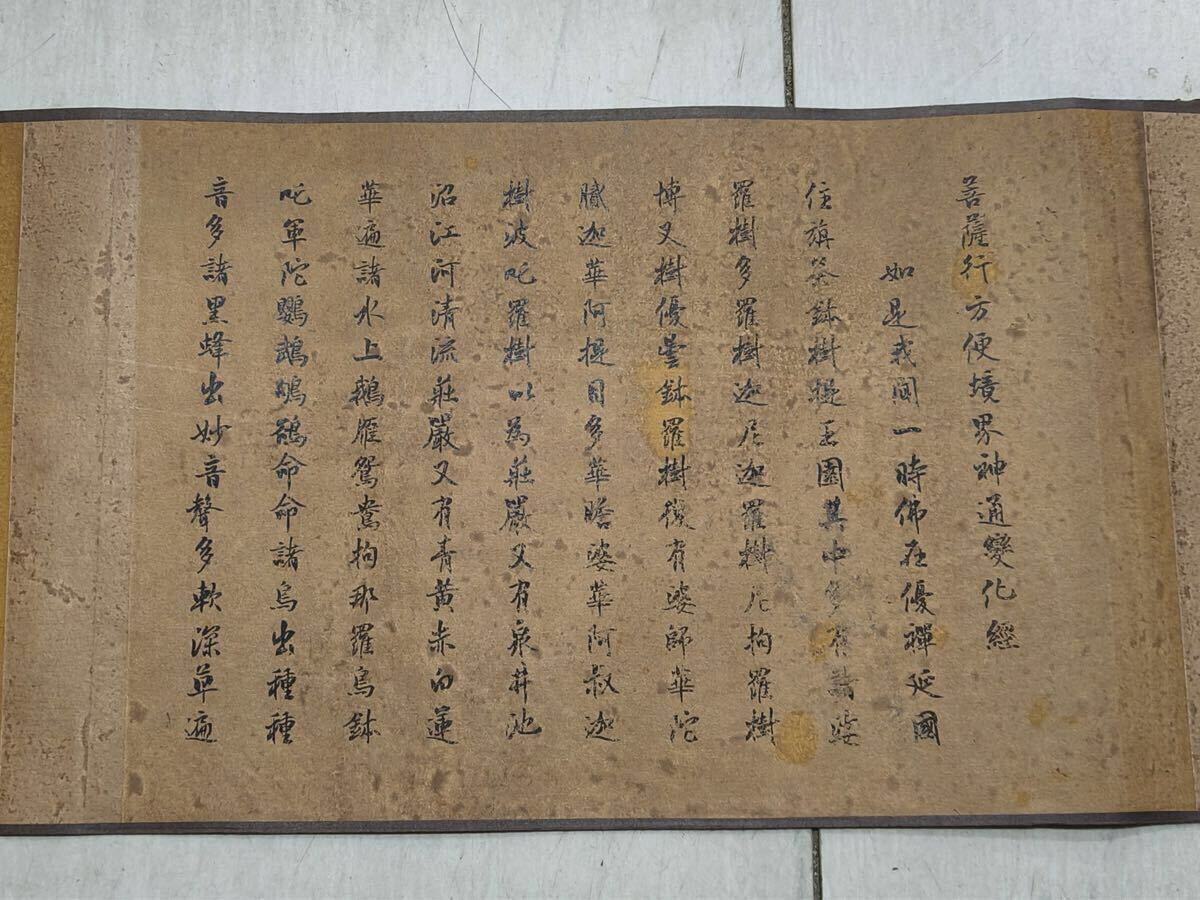 菩薩行方便境界神通變化經
如是我聞一時佛在優禪延國
住旃荼鉢樹提王園其中多有諸婆
羅樹多羅樹迦尼迦羅樹尼拘羅樹
博叉樹優曇鉢羅樹復有婆師華陀
膩迦華阿提目多華瞻婆華阿叔迦
樹波吒羅樹以為莊嚴又有泉井池
沼江河清流莊嚴又有青黃赤白蓮
華遍諸水上鵝雁鴛鴦拘那羅鳥鉢
吒軍陀鸚鵡鴝鵒命命諸鳥出種種
音多諸黑蜂出妙音聲多軟深草遍